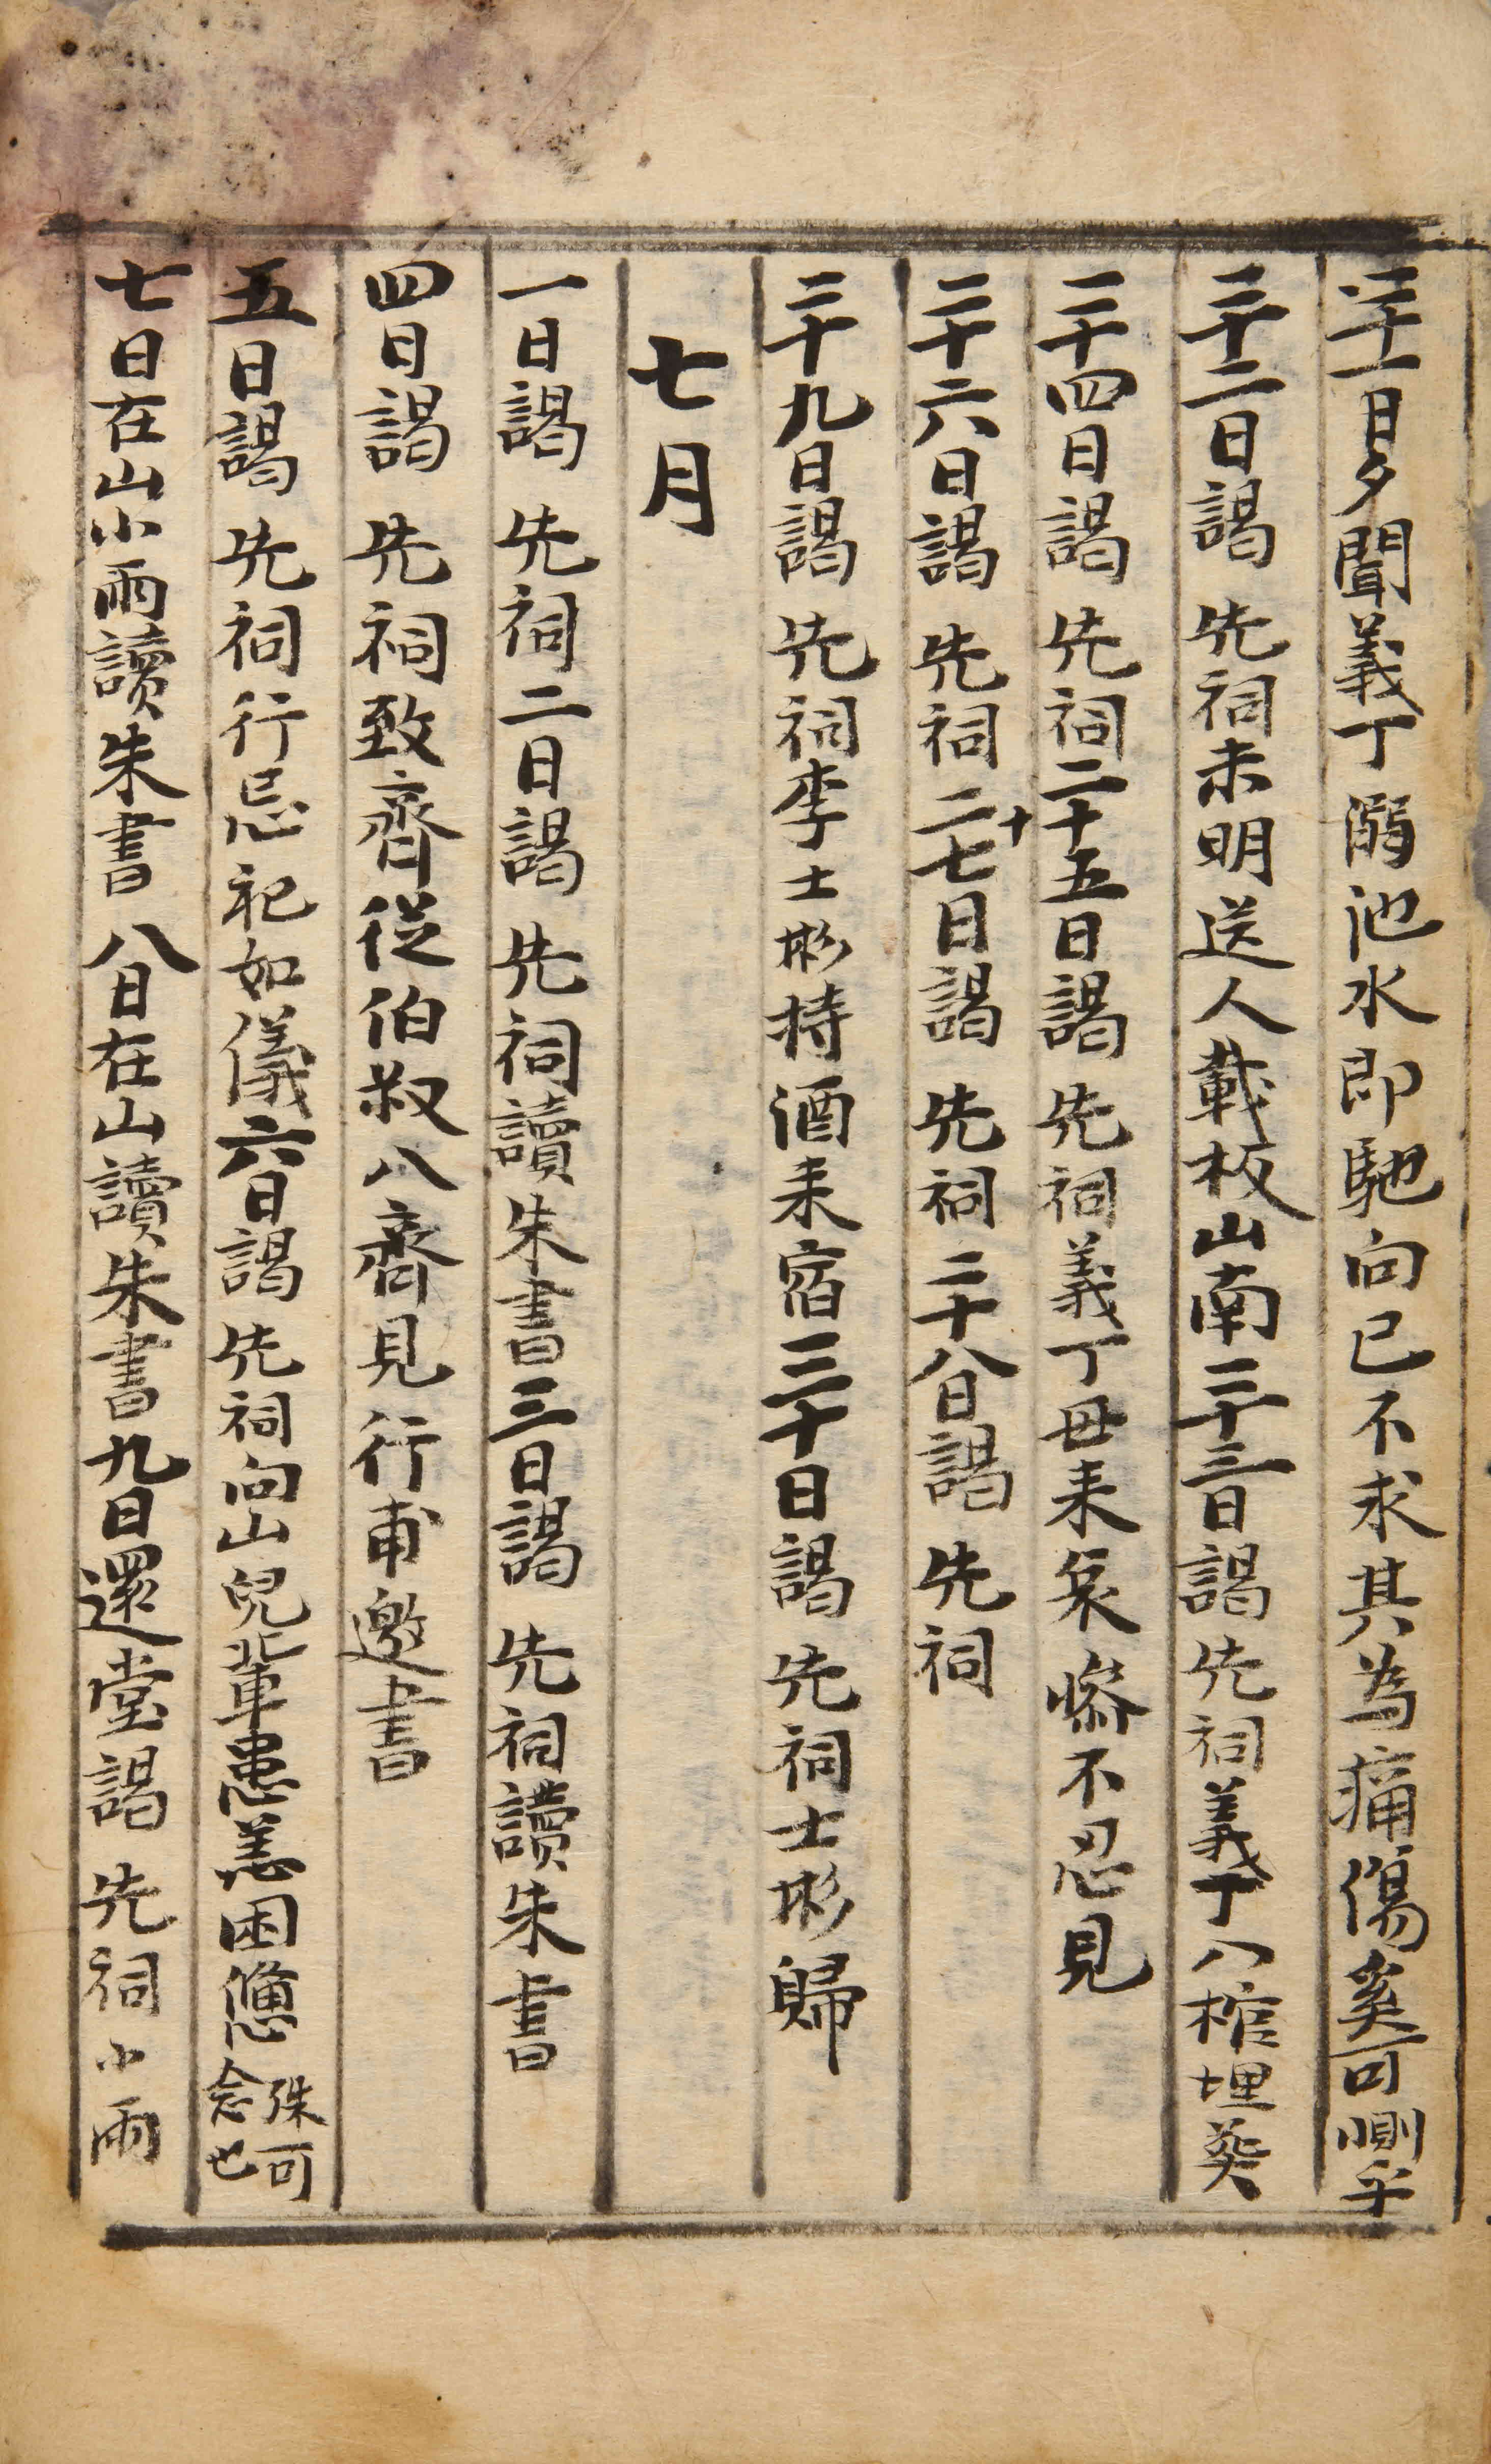 二十一日夕聞義丁溺池水即馳向已不求其為痛傷奚可惻乎
二十二日謁 先祠未明送人載板山南二十三日謁 先祠義丁入棺埋葬
二十四日謁 先祠二十五日謁 先祠義丁母来哀慘不忍見
二十六日謁 先祠二十七日謁 先祠二十八日謁 先祠
二十九日謁 先祠李士彬持酒来宿三十日謁 先祠士彬歸
七月
一日謁 先祠二日謁 先祠讀朱書三日謁 先祠讀朱書
四日謁 先祠致齊從伯叔入齊見行甫邀書
五日謁 先祠行忌祀如儀六日謁 先祠向山兒輩患恙困憊殊可念也
七日在山小雨讀朱書 八日在山讀朱書九日還堂謁 先祠小雨